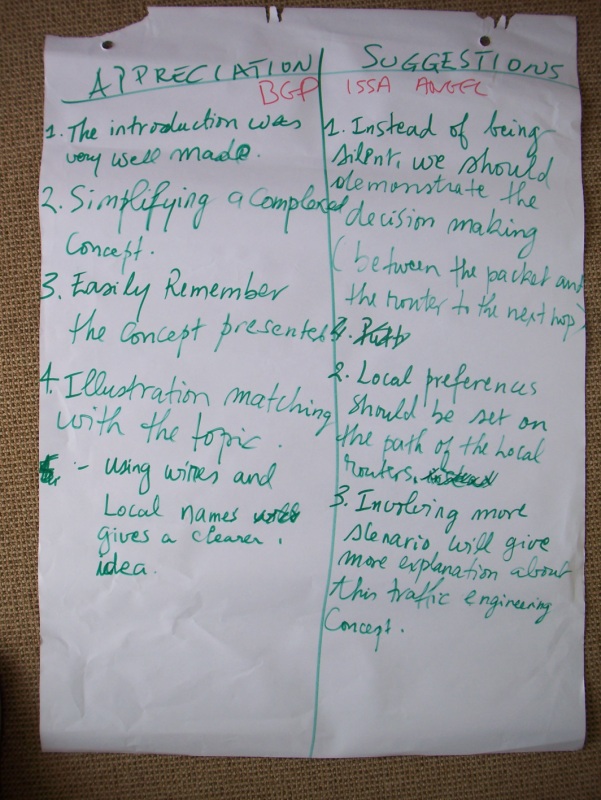 APPRECIATION
SUGGESTIONS
BGP ISSA ANGEL
1. The introduction was
very well made.
2. Simplifying a Complexed
Concept.
3. Easily Remember
the concept presented
4. Illustration matching
with the topic.
:- Using wires and
Local names
gives a clearer.
idea.
1. Instead of being
silent, we should
demonstrate the
decision making
(between the packet and
the router to the next hop)
2. Local preferences
should be set on
the path of the Local
routers. instead
3. Involving more
scenario will give
more explanation about
this traffic engineering
Concept.